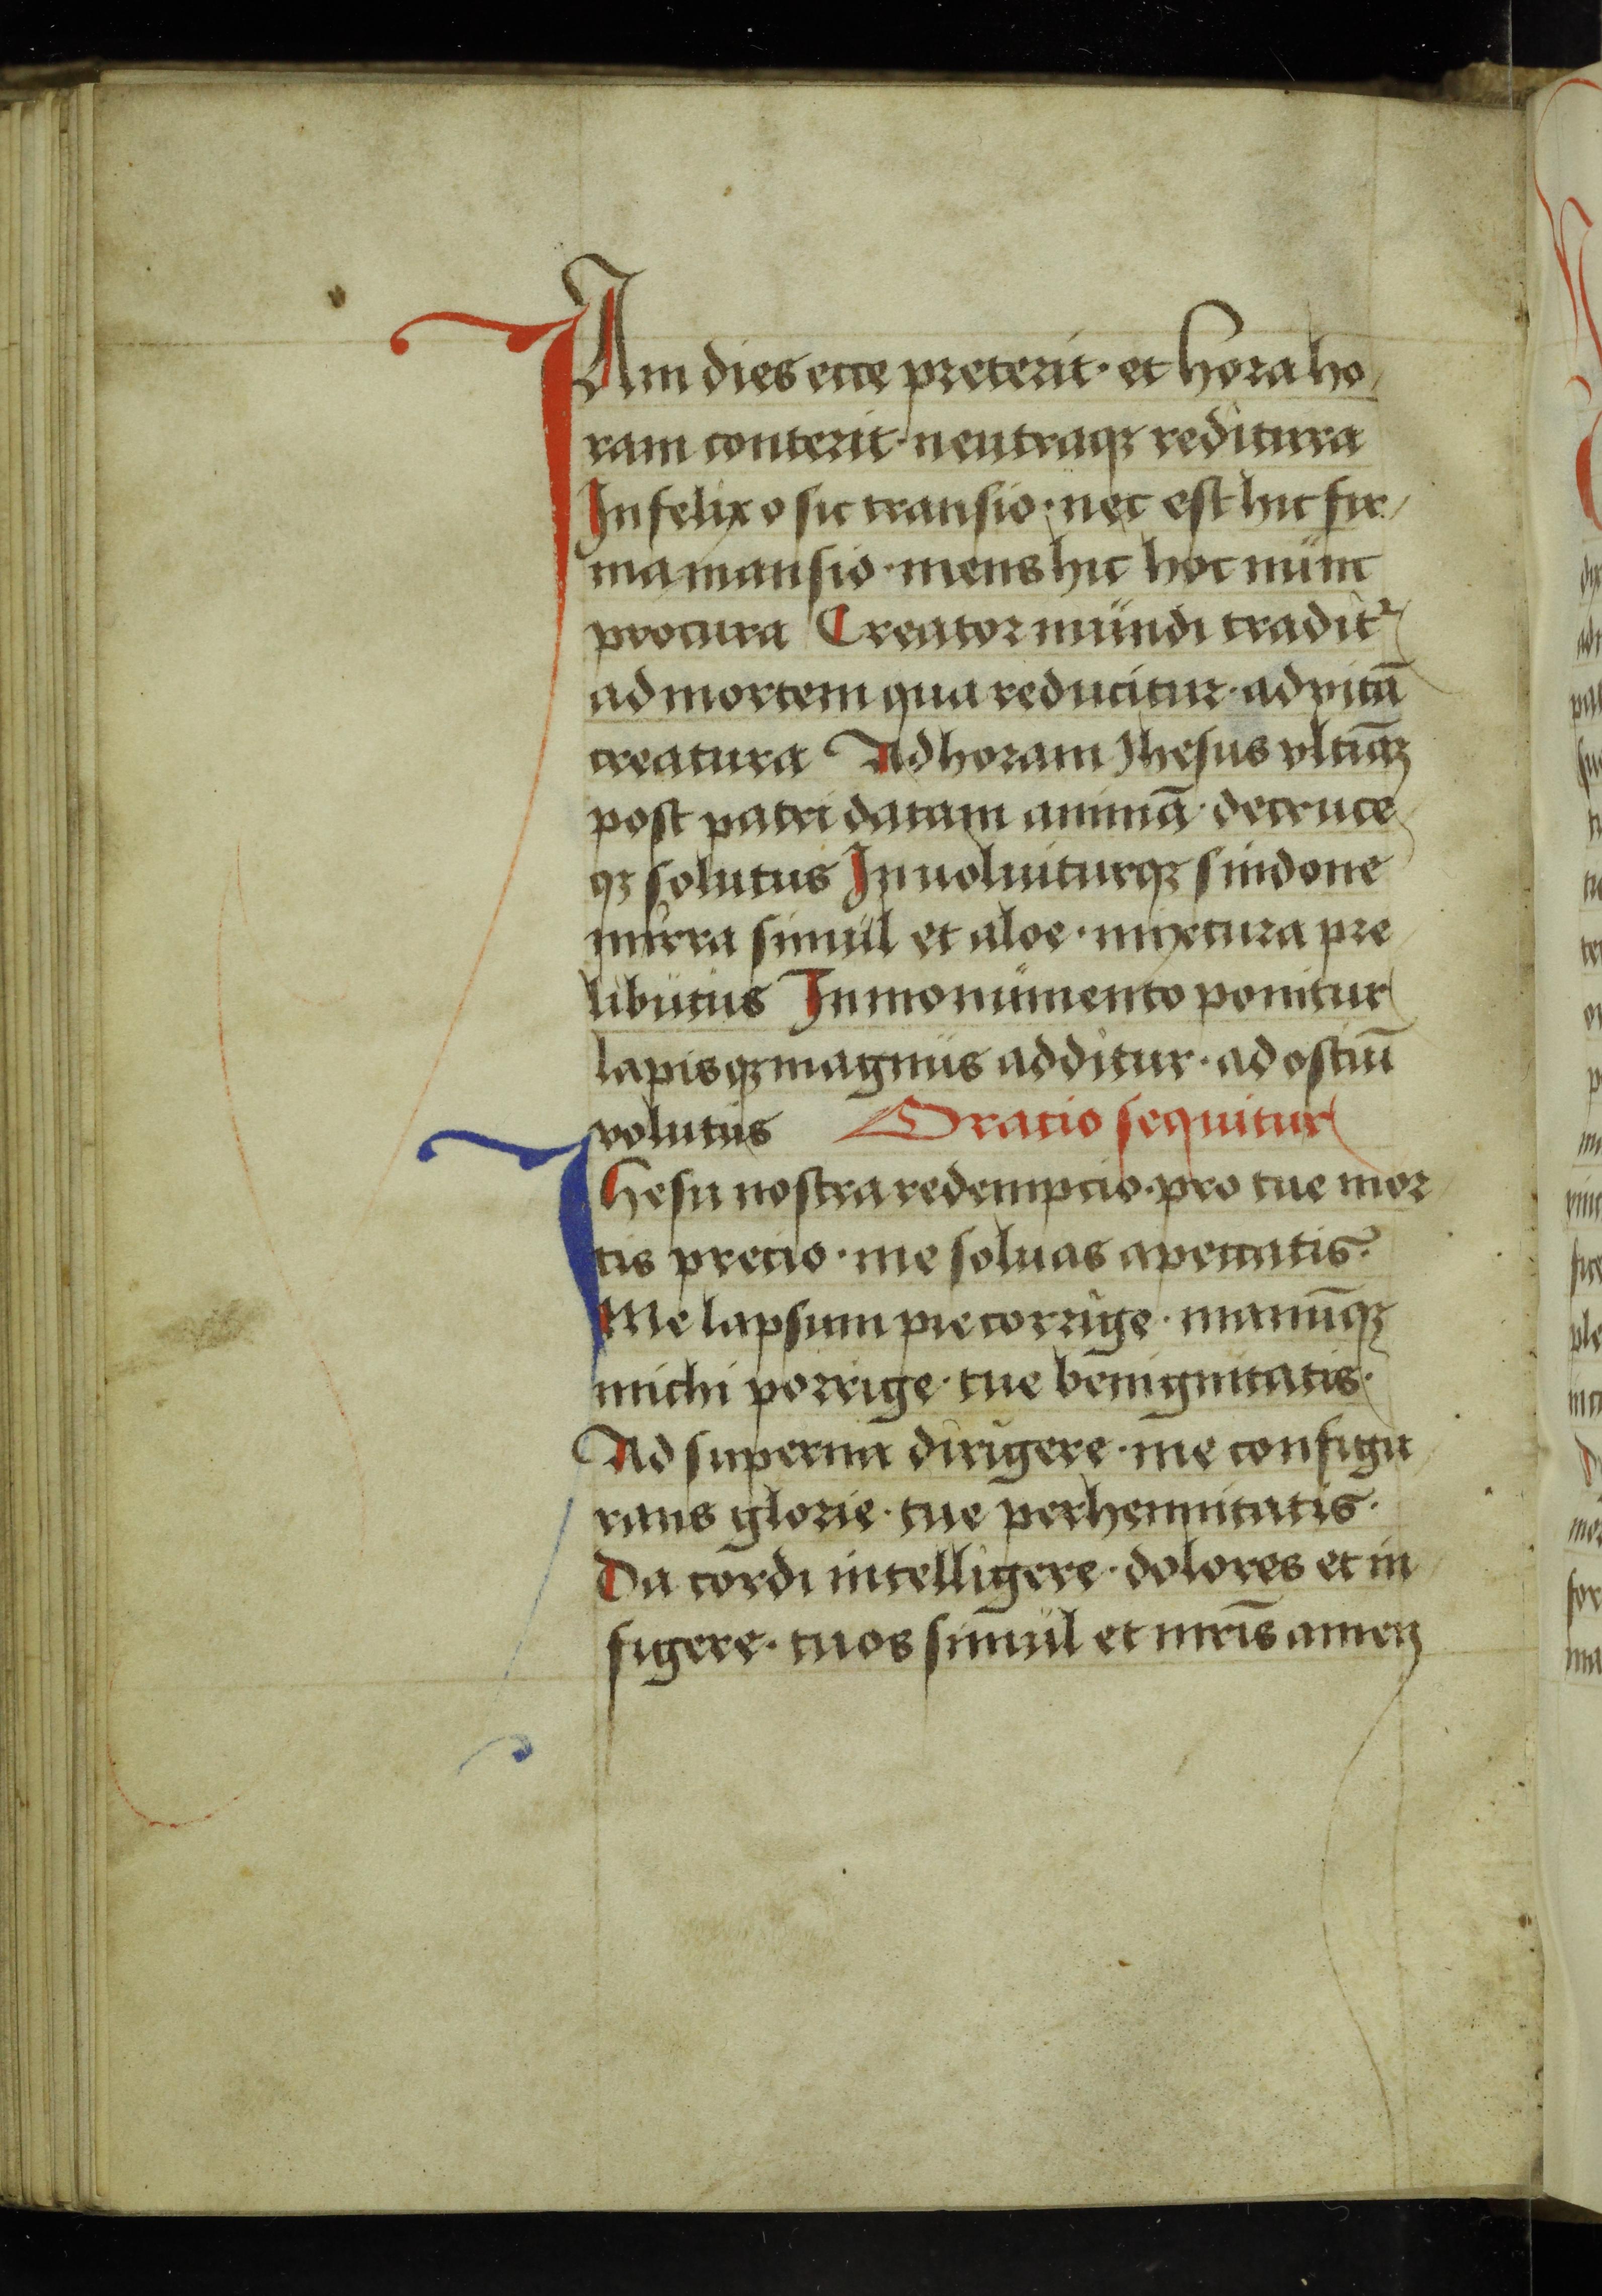 IAm dies ecce preterit · et hora ho
ram conterit · neutraqꝫ reditura
Infelix o sic transio · nec est hic fir
ma mansio · mens hic hoc nunc
procura Creator mundi traditᷣ
ad mortem qua reducitur · ad vitā
creatura Ad horam Ihesus vltīaqꝫ
post patri datam animā · de cruce
qꝫ solutus Inuoluiturqꝫ sindone
mirra simul et aloe · mixtura pre
libutus In monumento ponitur
lapisqꝫ magnus additur · ad ostiū
volutus Oratio sequitur
Ihesu nostra redempcio · pro tue mor
tis precio · me soluas a peccatis ·
Me lapsum pie corrige · manūqꝫ
michi porrige · tue benignitatis ·
Ad superna dirigere · me configu
rans glorie · tue perhennitatis ·
Da cordi intelligere · dolores et in
figere · tuos simul et mr̄is amen